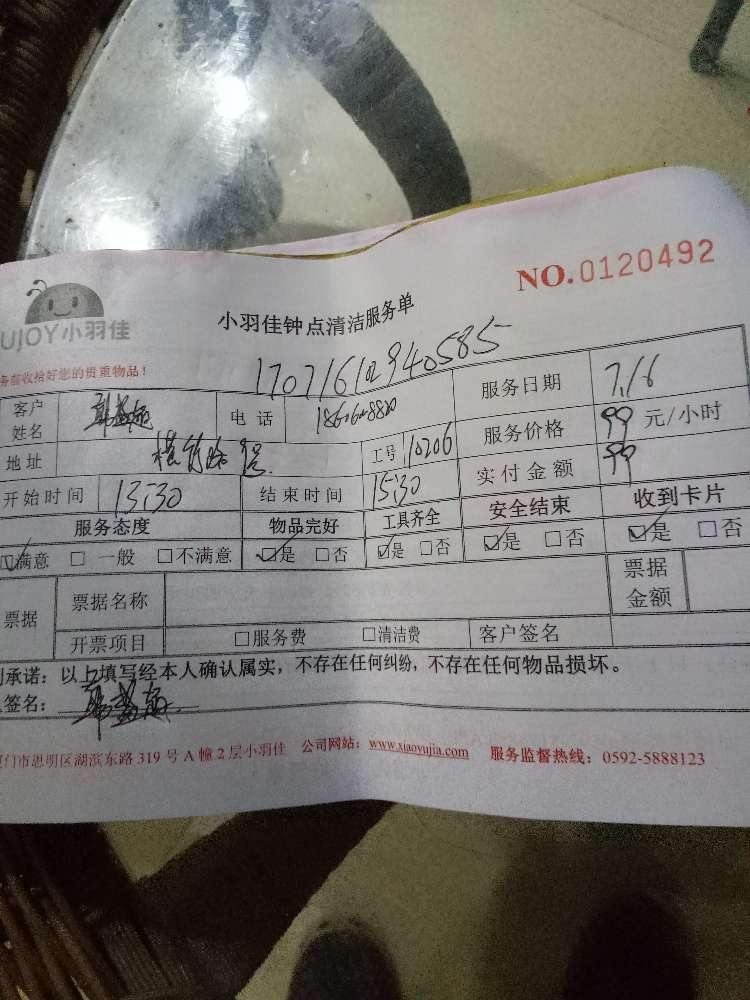 NO.0120492
UJOY小羽佳
小羽佳钟点清洁服务单
务前收拾好您的贵重物品！
客户姓名 电话 服务日期 7.16
地址 工号 110206 服务价格 99 元/小时
开始时间 13:30 结束时间 15:30 实付金额 99
服务态度 物品完好 工具齐全 安全结束 收到卡片
☑满意 □一般 □不满意 ☑是 □否 ☑是 □否 ☑是 □否 ☑是 □否
票据 票据名称 票据金额
开票项目 □服务费 □清洁费 客户签名
承诺：以上填写经本人确认属实，不存在任何纠纷，不存在任何物品损坏。
签名：
门市思明区湖滨东路319号A幢2层小羽佳 公司网站：www.xiaoyujia.com 服务监督热线：0592-5888123